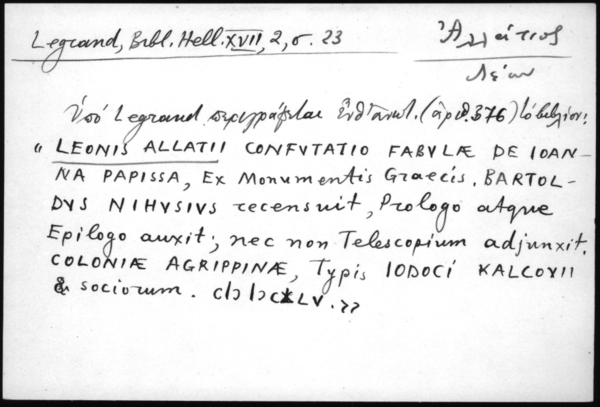 Legrand, Bibl. Hell. XVII, 2, σ. 23
Ἀλλάτιος
Λέων
Ὑπὸ Legrand περιγράφεται ἐνθ' ἀνωτ. (ἀριθ. 376) τὸ βιβλίον:
"LEONIS ALLATII CONFVTATIO FABVLÆ DE IOAN-
NA PAPISSA, Ex Monumentis Graecis. BARTOL-
DVS NIHVSIVS recensuit, Prologo atque
Epilogo auxit; nec non Telescopium adjunxit.
COLONIÆ AGRIPPINÆ, Typis IODOCI KALCOVII
& sociorum. cIɔ Iɔc XLV.»